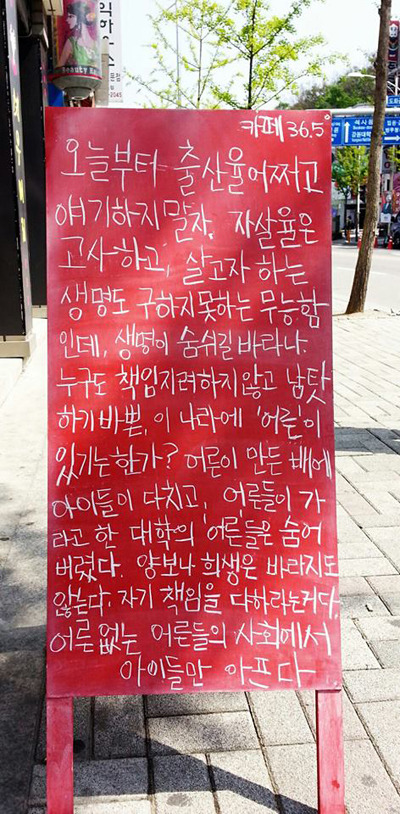 카페 36.5°
오늘부터 출산율어쩌고
얘기하지말자. 자살율은
고사하고, 살고자 하는
생명도 구하지못하는 무능함
인데, 생명이 숨쉬길 바라나.
누구도 책임지려하지않고 남탓
하기바쁜, 이 나라에 '어른'이
있기는한가? 어른이 만든 배에
아이들이 다치고, '어른들이 가
라고 한 대학의 '어른'들은 숨어
버렸다. 양보나 희생은 바라지도
않는다. 자기 책임을 다하라는거다.
어른 없는 어른들의 사회에서
아이들만 아프다